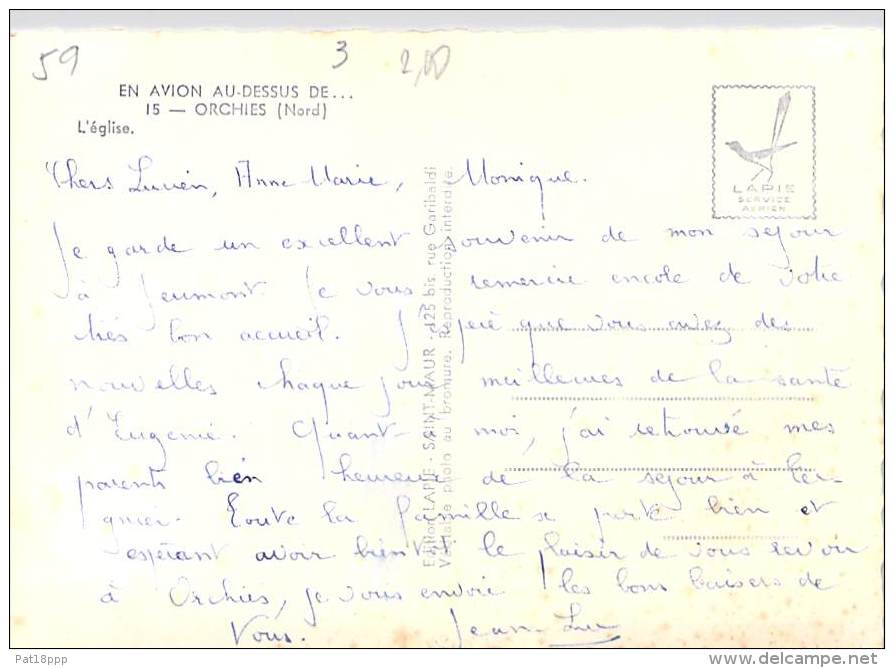 59
3
2,00
EN AVION AU-DESSUS DE...
15 — ORCHIES (Nord)
L'église.
LAPIE
SERVICE
AERIEN
Chers Lucien, Anne Marie, Monique.
Je garde un excellent souvenir de mon sejour
à Jeumont. Je vous remercie encore de votre
très bon accueil. J'espère que vous avez des
nouvelles chaque jour meilleures de la santé
d'Eugénie. Quant à moi, j'ai retrouvé mes
parents bien heureux de séjour à
Toute la famille se porte bien et
espérant avoir bientôt le plaisir de vous revoir
à Orchies, je vous envoie les bons baisers de
Nous. Jean-Luc
Edition LAPIE - SAINT-MAUR - 125 bis, rue Garibaldi
Véritable photo au bromure. Reproduction interdite.
Pat18ppp
POSTCARD